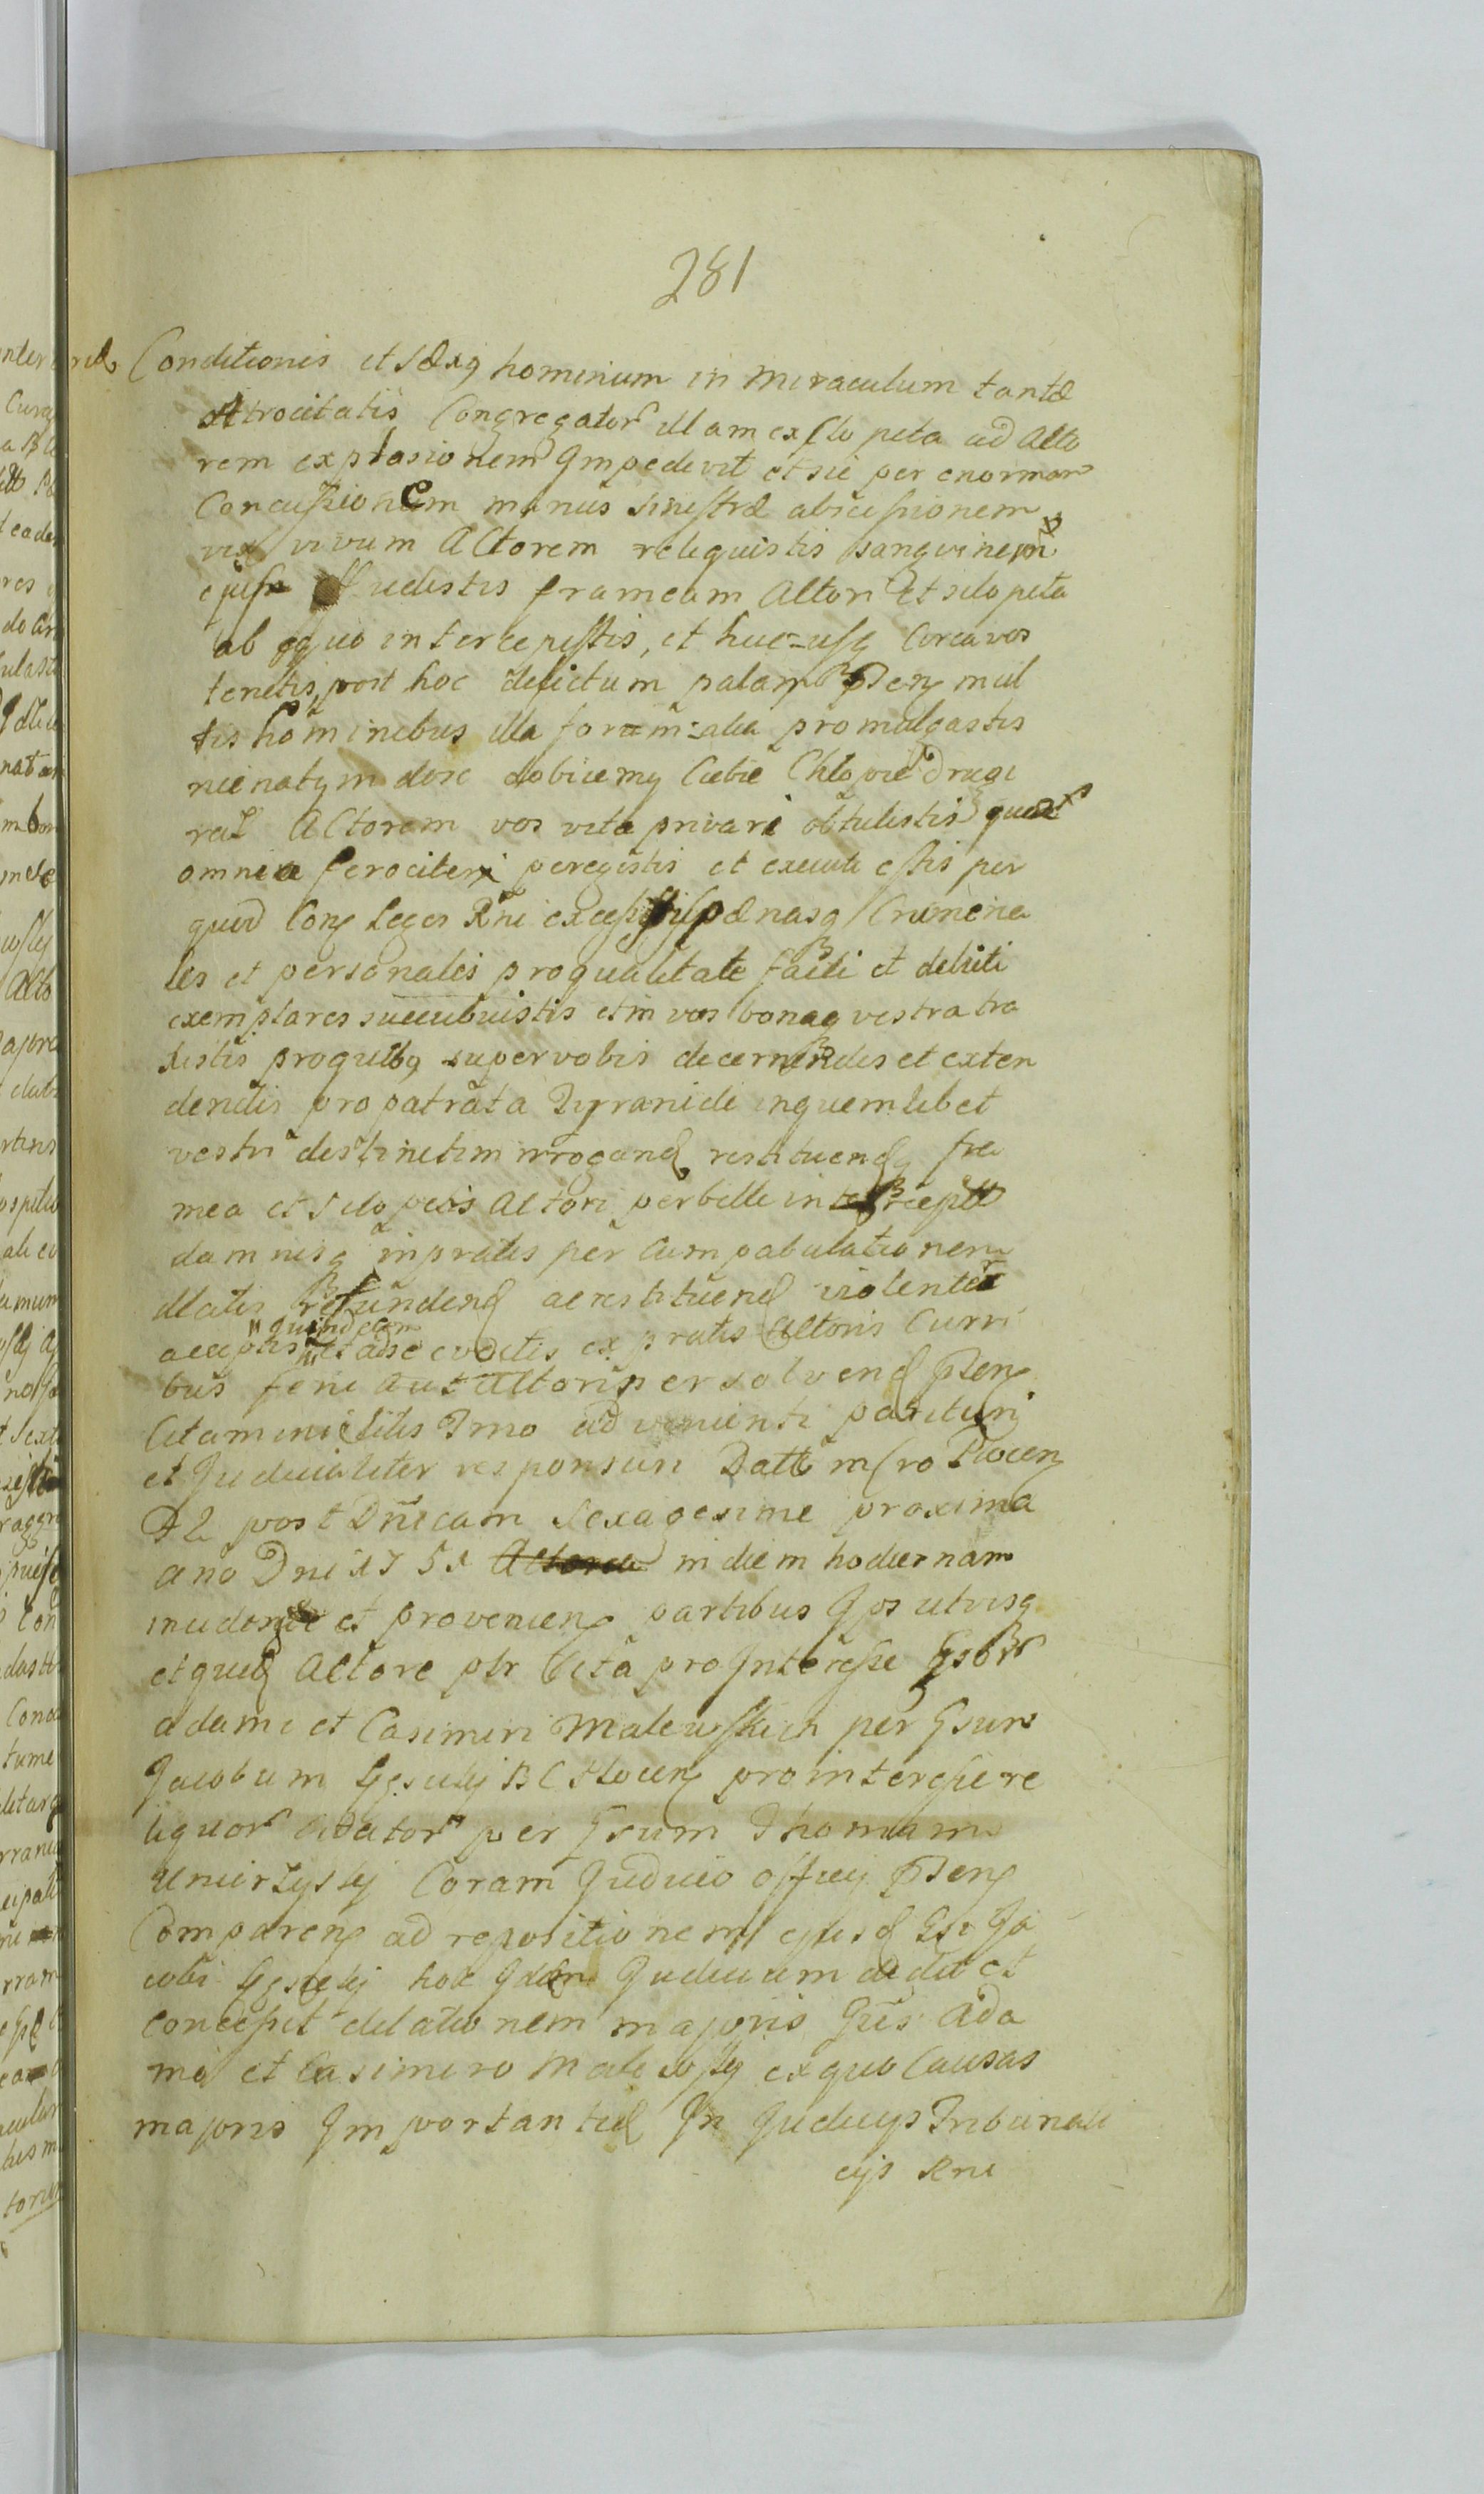 281
Conditionis et sexq hominum in miraculum tantæ
Atrocitatis Congregator illam ex sclopeta ad Acto
rem explosionem Impedivit et sic per enormem
Concussionem manus sinistræ abscissionem
vix vivum Actorem reliquistis sanguinem
ejus effudistis frameam Actori et sclopeta
ab equo intercepistis, et huc=usq Circa vos
tenetis post hoc delictum palam Psen mul
tis hominibus illa form=alia promulgastis
nie natym dosc dobiiemy Ciebie Chłopie Drugi
raz Actorem vos vita privari obtulistis quæ
omnia ferociter peregistis et executi estis per
quod Leges Rni excessistis pænasq Crimina
les et personales pro qualitate facti et delicti
exemplares succubuistis et in vos bonaq vestra tra
xistis pro quibq super vobis decernendis et exten
dendis pro patrata Tyranide in quemlibet
vestri destinctim irrogand restituend fra
mea et sclopetis Actori per belle intercept
damnisq in pratis per Cum pabulationem
illatis refundend ac restituend violenter
quindecim
acceptis et ad se evectis ex pratis Actoris Curri
bus feni aut Actori persolvend Psen
Citaminis litis Imo ad venienti parituri
et Judicialiter responsuri Datt in Cro Plocen
F2 post Dnicam Sexagesime proxima
ano Dni 1751 in diem hodiernam
inciden et provenien partibus Ips utrisq
et quid Actore ptr Cita pro Interesse Gsor
Adami et Casimiri Malewskich per Gsum
Jacobum BC Plocen pro interesse re
liquor Citator per Gsum Thomam
Umirzyskj Coram Judicio officij Psen
Comparen ad repositionem ejusd Gsi Ja
cobi hoc Idem Judicium dedit et
concessit dilationem majoris Gsis Ada
mi et Casimiro Malewskj ex quo Causas
majoris Importantiæ In Judicijs Tribunali
cijs Rni